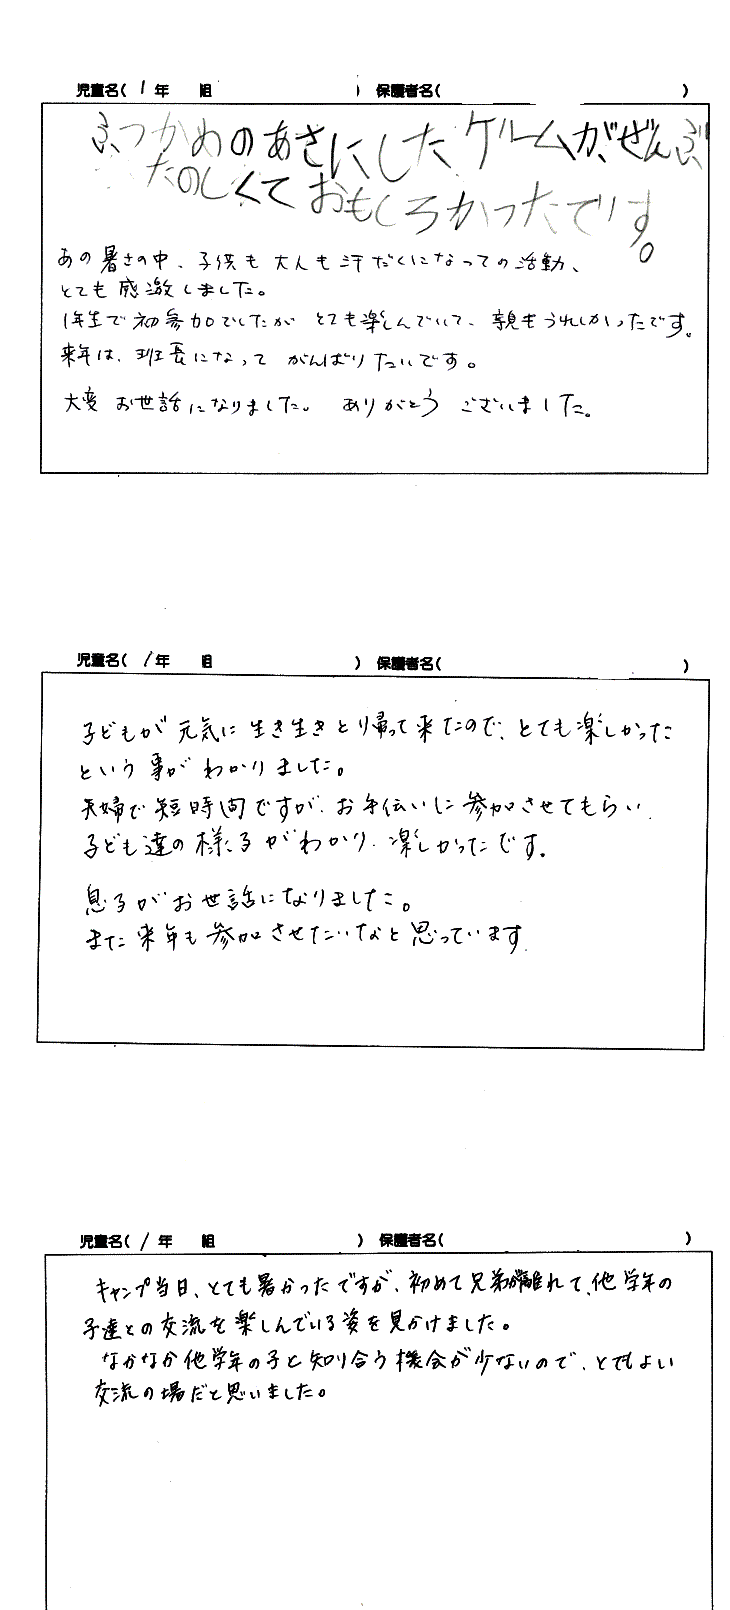 児童名( 1 年 組 ) 保護者名( )
ふつかめのあさにしたゲームが、ぜんぶ
たのしくておもしろかったです。
あの暑さの中、子供も大人も汗だくになっての活動、
とても感激しました。
1年生で初参加でしたが とても楽しんでいて、親もうれしかったです。
来年は、班長になって がんばりたいです。
大変 お世話になりました。 ありがとう ございました。
児童名( 1年 組 ) 保護者名( )
子どもが 元気に 生き生きとり帰って来たので、とても楽しかった
という事が わかりました。
夫婦で短時間ですが、お手伝いに参加させてもらい、
子ども達の様子がわかり、楽しかったです。
息子がお世話になりました。
また来年も参加させたいなと思っています。
児童名( 1 年 組 ) 保護者名( )
キャンプ当日、とても暑かったですが、初めて兄弟が離れて、他学年の
子達との交流を楽しんでいる姿を見かけました。
なかなか他学年の子と知り合う機会が少ないので、とてもよい
交流の場だと思いました。